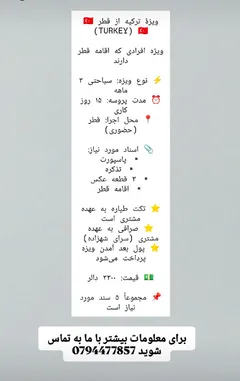 🇹🇷 ویزهٔ ترکیه از قطر
🇹🇷 (TURKEY)
ویژه افرادی که اقامه قطر
دارند
⚡ نوع ویزه: سیاحتی ۳
ماهه
⏰ مدت پروسه: ۱۵ روز
کاری
📍 محل اجرا: قطر
(حضوری)
📎 اسناد مورد نیاز:
• پاسپورت
• تذکره
• ۲ قطعه عکس
• اقامه قطر
⭐ تکت طیاره به عهده
مشتری است
⭐ صرافی به عهده
مشتری (سرای شهزاده)
⭐ پول بعد آمدن ویزه
پرداخت می‌شود
💵 قیمت: ۳۳۰۰ دالر
📌 مجموعاً ۵ سند مورد
نیاز است
برای معلومات بیشتر با ما به تماس
شوید 0794477857